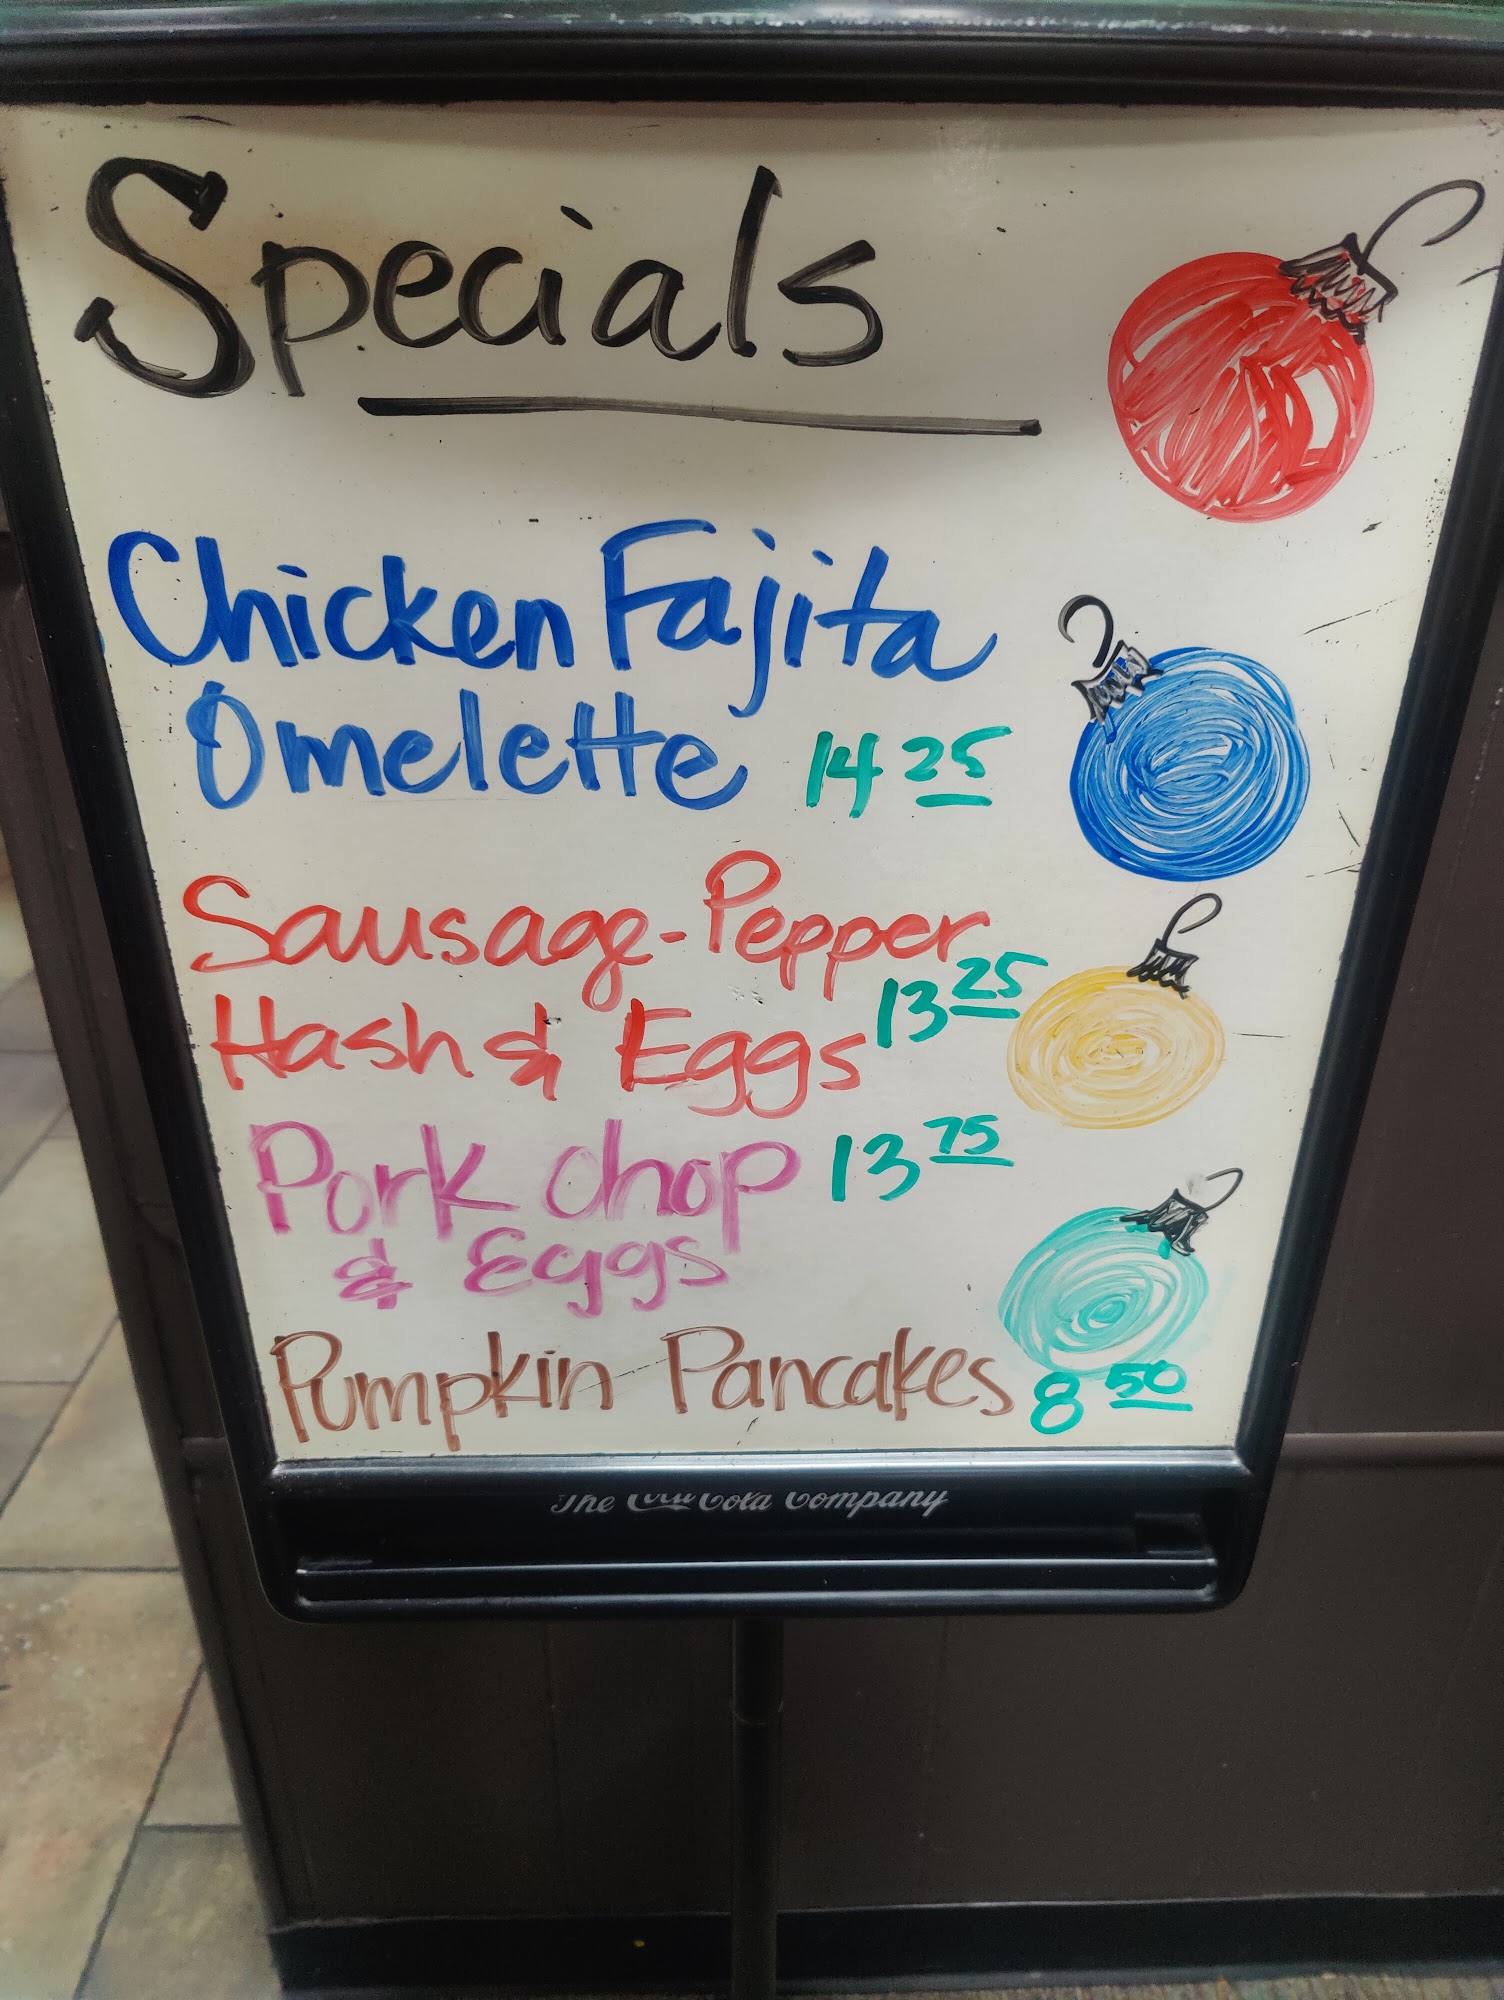 Specials
Chicken Fajita
Omelette 14 25
Sausage-Pepper
Hash & Eggs 13 25
Pork Chop 13 75
& Eggs
Pumpkin Pancakes 8 50
The Coca-Cola Company